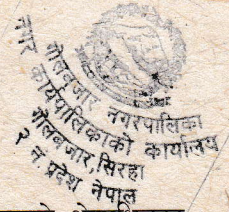 गोलबजार नगरपालिका
नगर कार्यपालिकाको कार्यालय
गोलबजार, सिरहा
२ नं. प्रदेश नेपाल